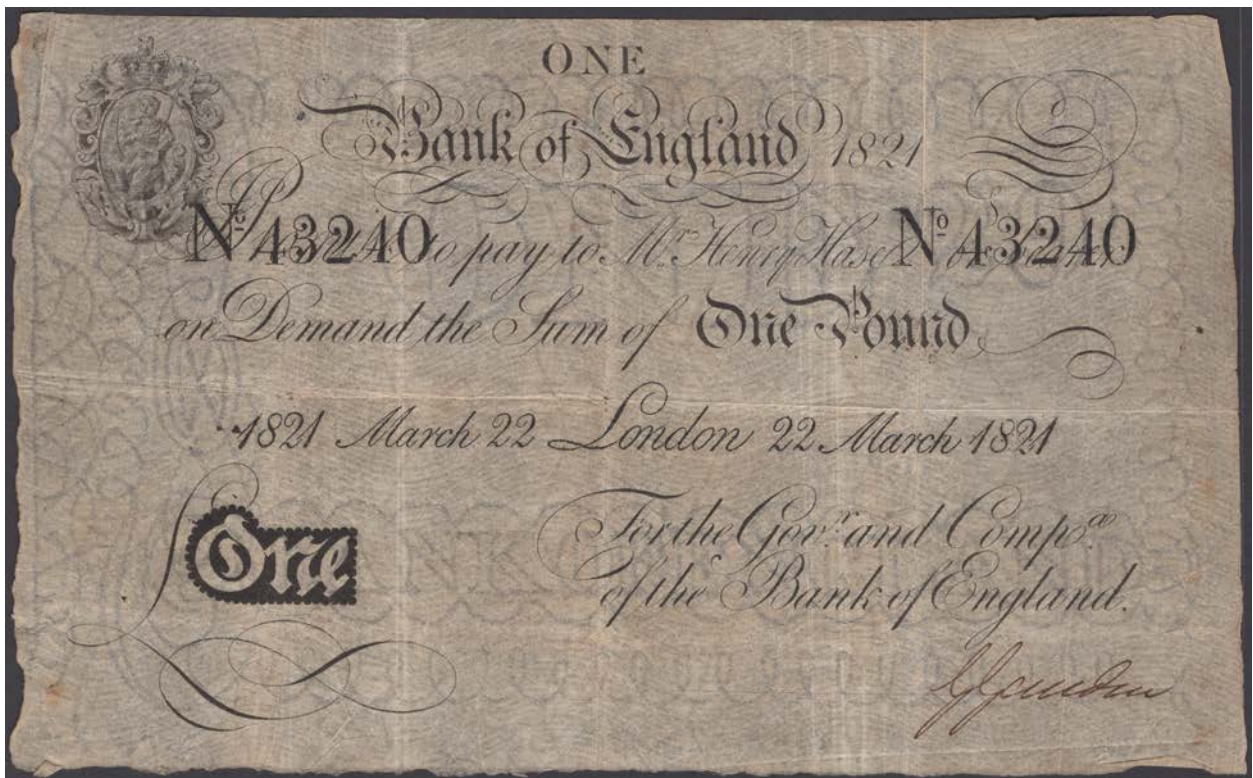 ONE
Bank of England 1821
No 43240 to pay to Mr. Henry Hase No 43240
on Demand the Sum of One Pound
1821 March 22 London 22 March 1821
One
For the Govr. and Compa.
of the Bank of England.